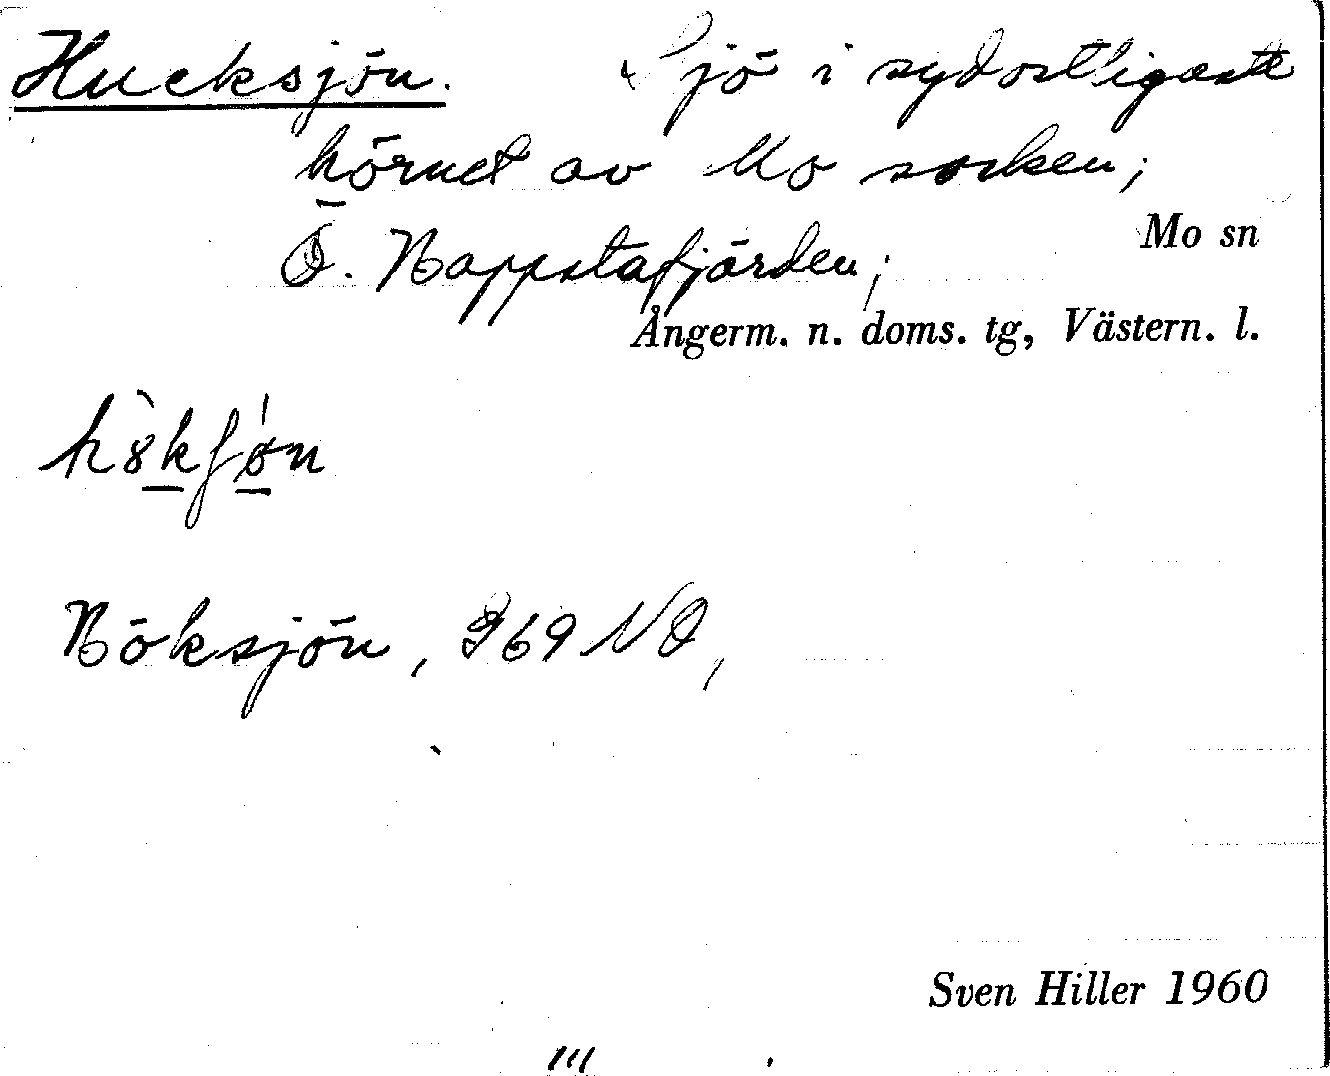 Hucksjön. Sjö i sydostligaste
hörnet av Mo socken;
Ö. Nappstafjärden;
Mo sn
Ångerm. n. doms. tg, Västern. l.
Höksjön, I69 NO,
Sven Hiller 1960